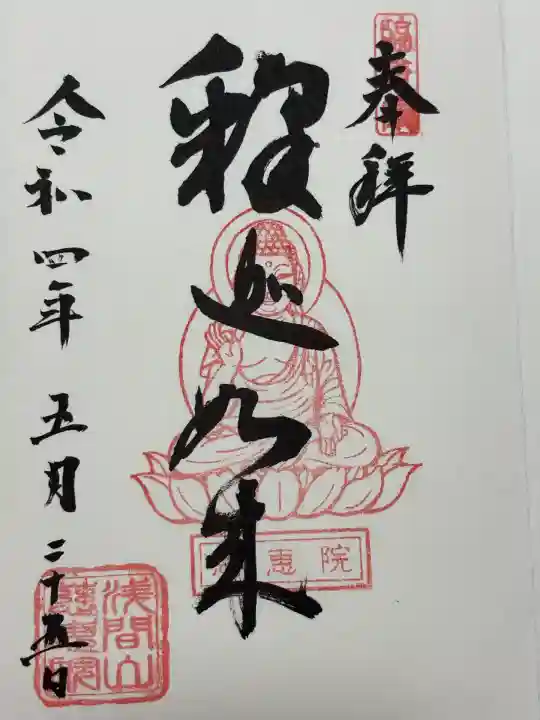 奉拝
釈迦如来
令和四年 五月二十五日
恵院
浅間山